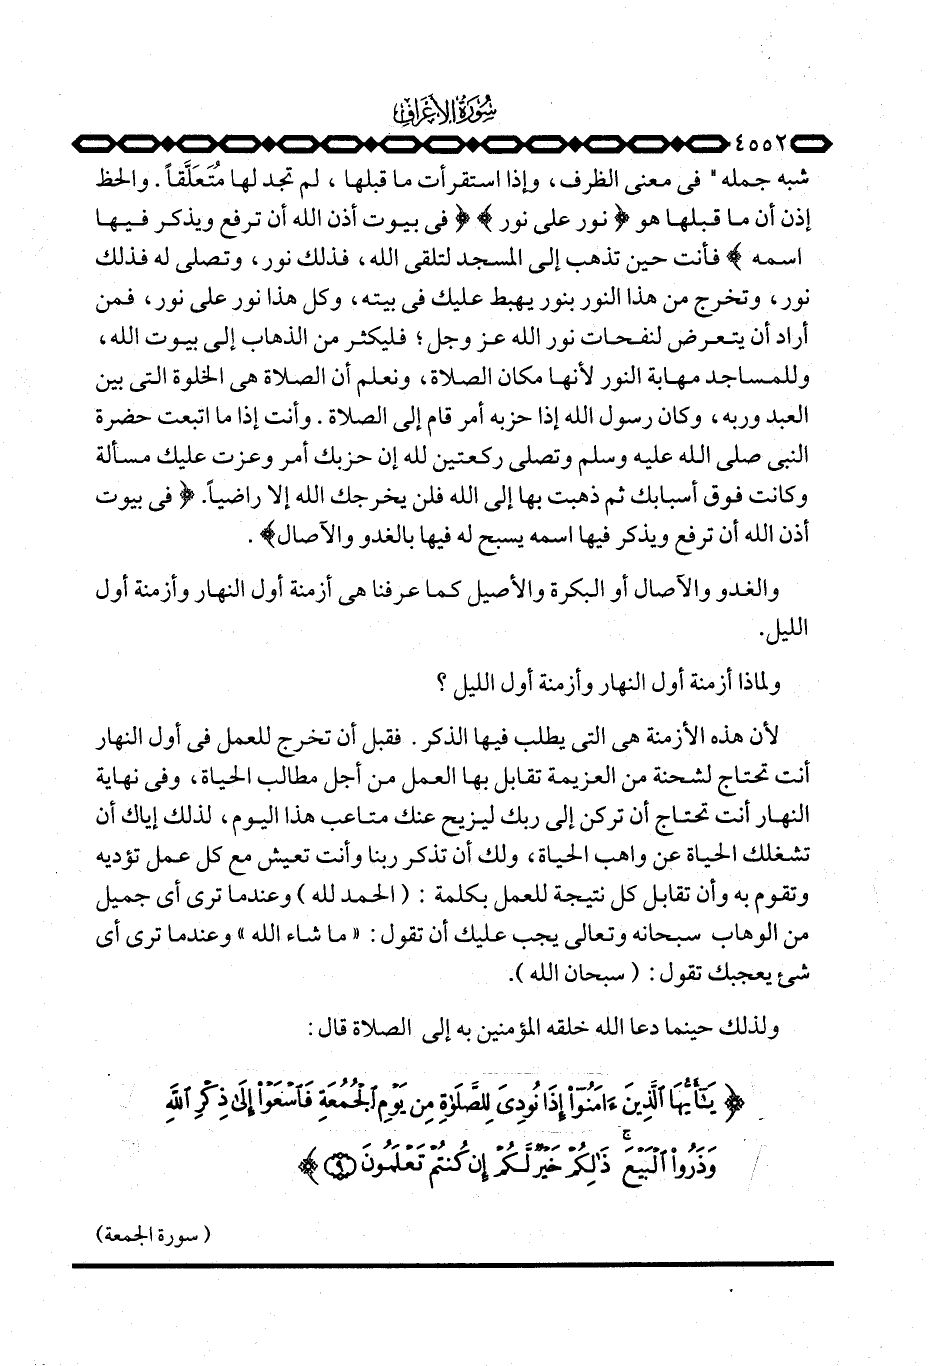 سورة الأعراف
٤٥٥٢
شبه جمله" فى معنى الظرف، وإذا استقرأت ما قبلها ، لم تجد لها مُتَعَلَّقاً. والحظ
إذن أن ما قبلها هو ﴿ نور على نور ﴾ ﴿ فى بيوت أذن الله أن ترفع ويذكر فيها
اسمه ﴾ فأنت حين تذهب إلى المسجد لتلقى الله، فذلك نور، وتصلى له فذلك
نور، وتخرج من هذا النور بنور يهبط عليك فى بيته، وكل هذا نور على نور، فمن
أراد أن يتعرض لنفحات نور الله عز وجل؛ فليكثر من الذهاب إلى بيوت الله،
وللمساجد مهابة النور لأنها مكان الصلاة، ونعلم أن الصلاة هى الخلوة التى بين
العبد وربه، وكان رسول الله إذا حزبه أمر قام إلى الصلاة . وأنت إذا ما اتبعت حضرة
النبى صلى الله عليه وسلم وتصلى ركعتين لله إن حزبك أمر وعزت عليك مسألة
وكانت فوق أسبابك ثم ذهبت بها إلى الله فلن يخرجك الله إلا راضياً. ﴿ فى بيوت
أذن الله أن ترفع ويذكر فيها اسمه يسبح له فيها بالغدو والآصال﴾ .
والغدو والآصال أو البكرة والأصيل كما عرفنا هى أزمنة أول النهار وأزمنة أول
الليل.
ولماذا أزمنة أول النهار وأزمنة أول الليل ؟
لأن هذه الأزمنة هى التى يطلب فيها الذكر. فقبل أن تخرج للعمل فى أول النهار
أنت تحتاج لشحنة من العزيمة تقابل بها العمل من أجل مطالب الحياة، وفى نهاية
النهار أنت تحتاج أن تركن إلى ربك ليزيح عنك متاعب هذا اليوم، لذلك إياك أن
تشغلك الحياة عن واهب الحياة، ولك أن تذكر ربنا وأنت تعيش مع كل عمل تؤديه
وتقوم به وأن تقابل كل نتيجة للعمل بكلمة : ( الحمد لله ) وعندما ترى أى جميل
من الوهاب سبحانه وتعالى يجب عليك أن تقول: « ما شاء الله » وعندما ترى أى
شئ يعجبك تقول: ( سبحان الله ).
ولذلك حينما دعا الله خلقه المؤمنين به إلى الصلاة قال:
﴿ يَٰٓأَيُّهَا ٱلَّذِينَ ءَامَنُوٓا۟ إِذَا نُودِىَ لِلصَّلَوٰةِ مِن يَوْمِ ٱلْجُمُعَةِ فَٱسْعَوْا۟ إِلَىٰ ذِكْرِ ٱللَّهِ
وَذَرُوا۟ ٱلْبَيْعَ ۚ ذَٰلِكُمْ خَيْرٌ لَّكُمْ إِن كُنتُمْ تَعْلَمُونَ ۝٩ ﴾
( سورة الجمعة)